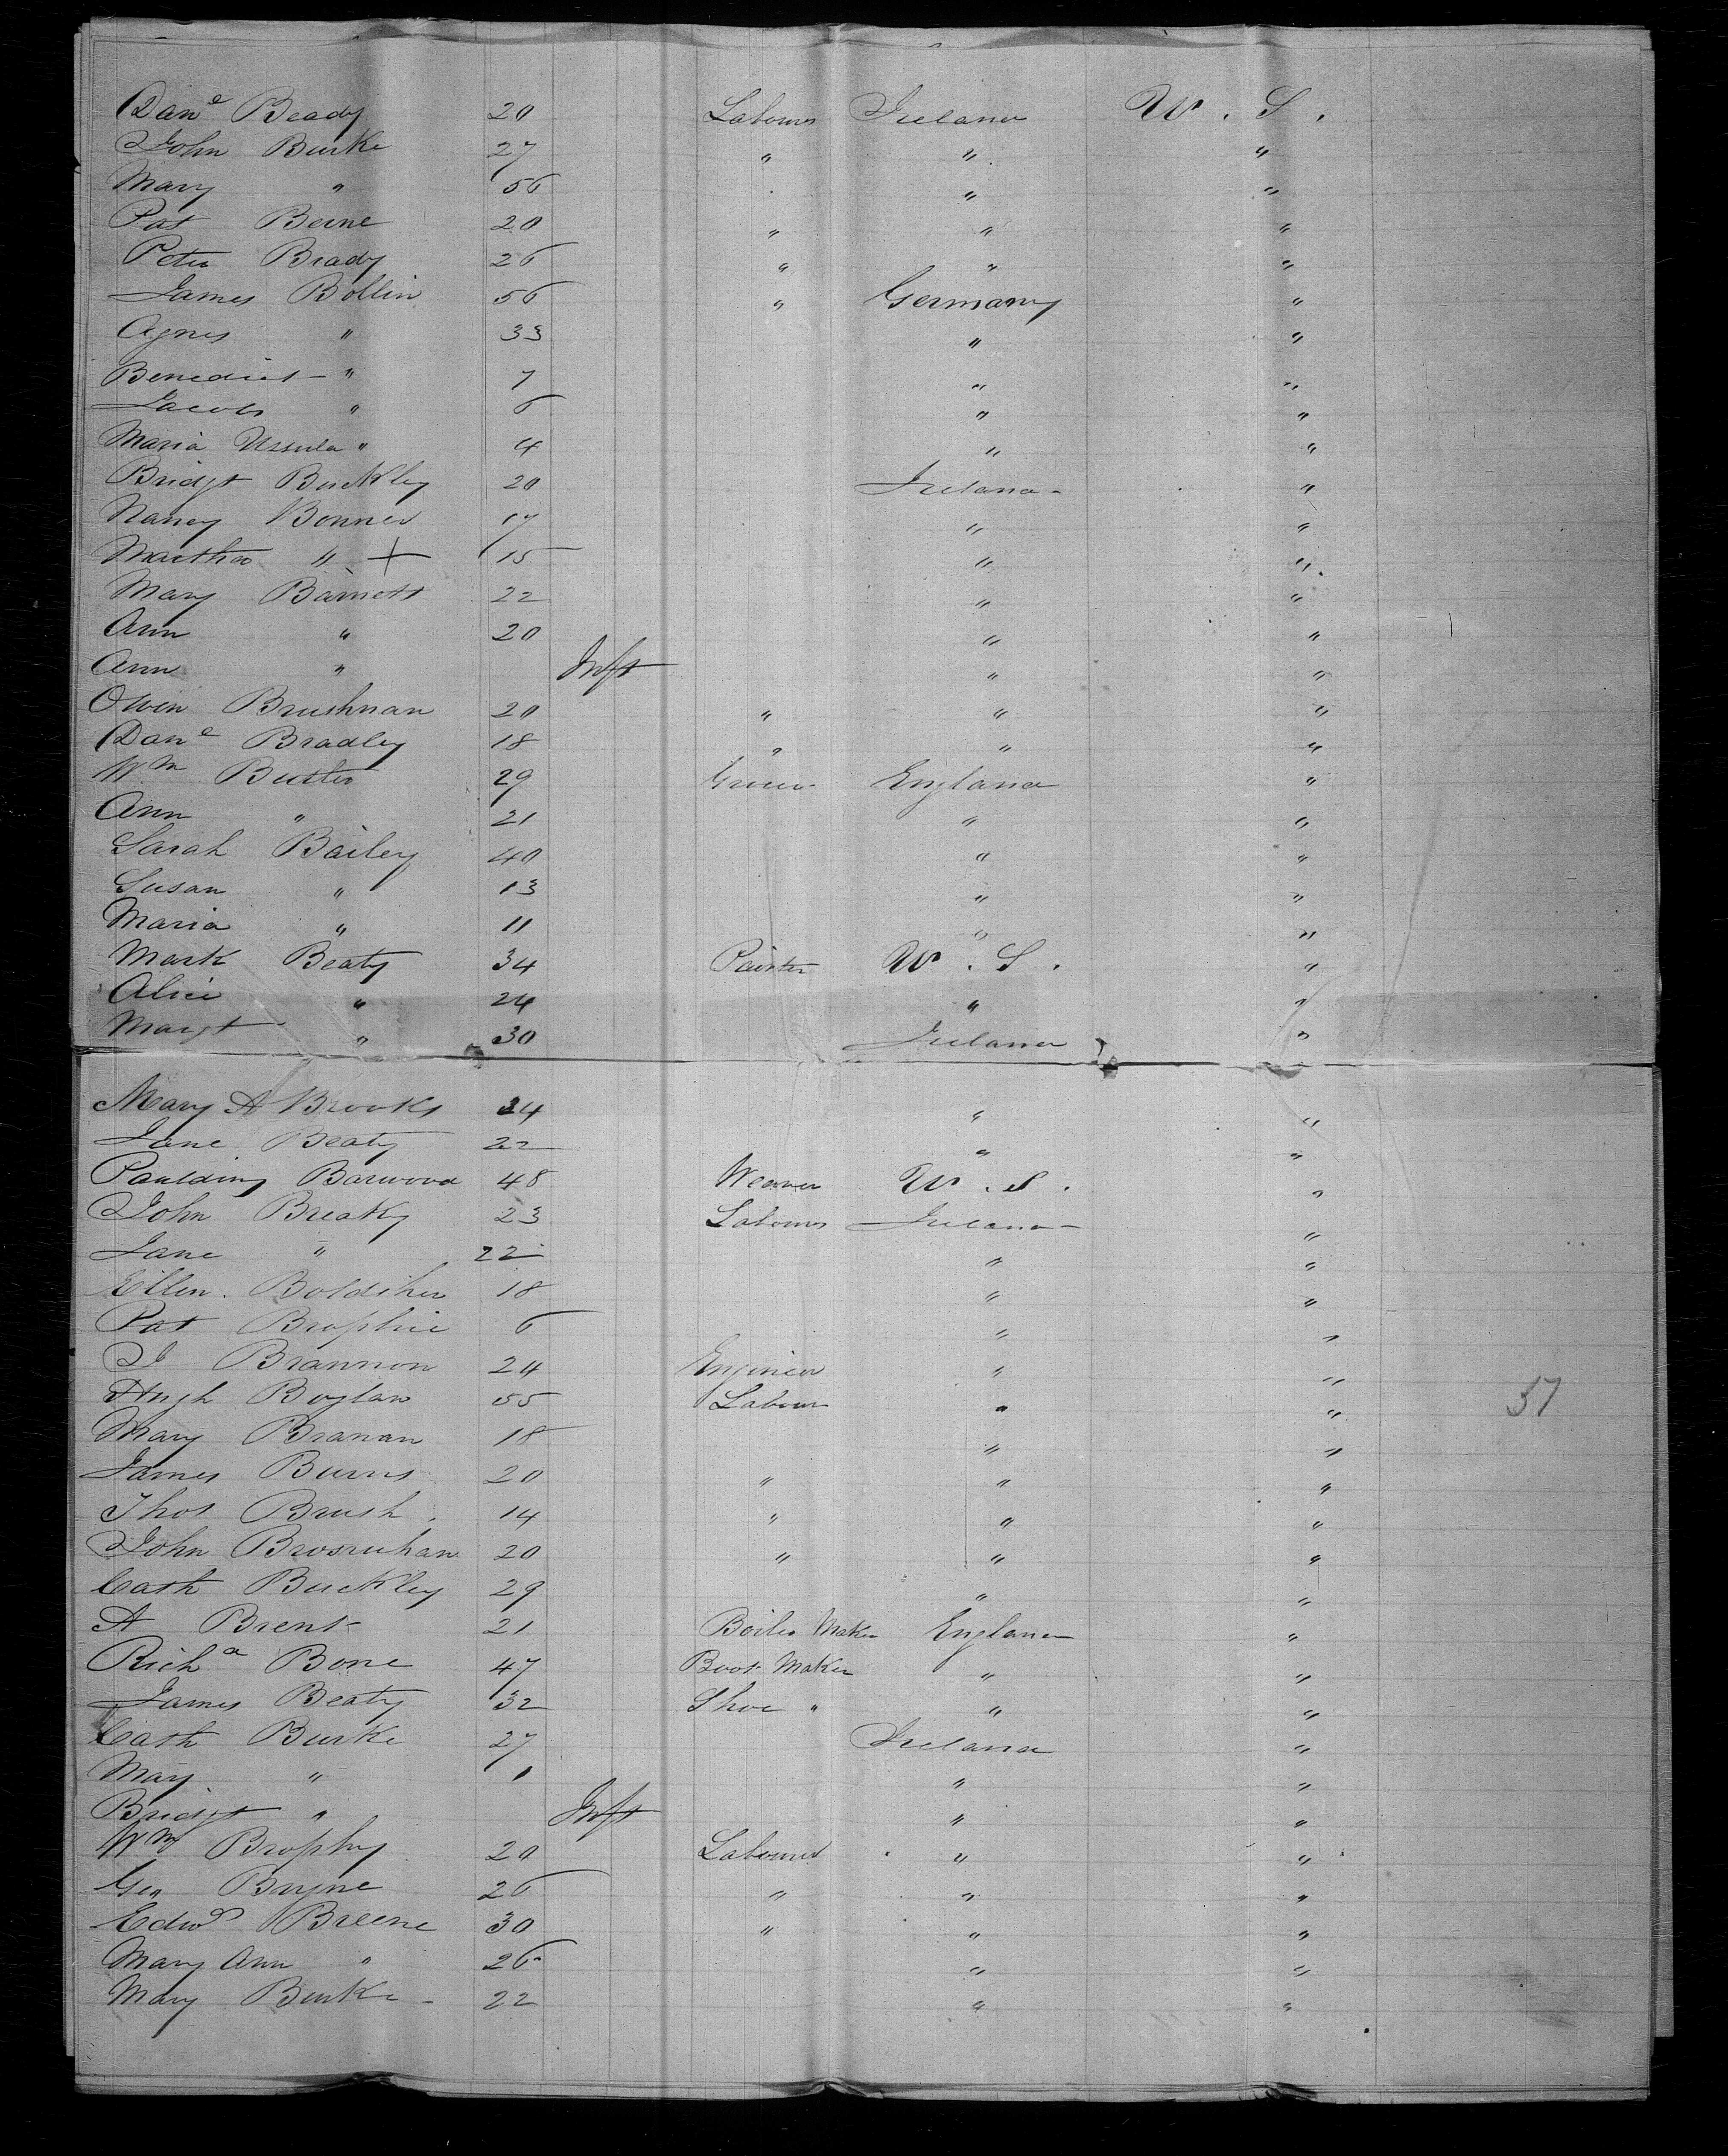 Danˡ Beady 20 Labourer Ireland U. S.
John Burke 27 " " "
Mary " 56 " "
Pat Beirne 20 " " "
Peter Brady 26 " " "
James Bollin 56 " Germany "
Agnes " 33 " "
Benedict " 7 " "
Jacob " 6 " "
Maria Ursula " 4 " "
Bridgt Buckley 20 Ireland "
Nancy Bonner 17 " "
Martha " + 15 " "
Mary Barnett 22 " "
Ann " 20 " "
Ann " Inft " "
Owen Brushnan 20 " " "
Danˡ Bradley 18 " " "
Wm Butler 29 Grocer England "
Ann " 21 " "
Sarah Bailey 40 " "
Susan " 13 " "
Maria " 11 " "
Mark Beaty 34 Painter U. S. "
Alice " 24 " "
Margt " 30 Ireland "
Mary A Brooks 24 " "
Jane Beaty 22 " "
Paulding Barwood 48 Weaver U. S. "
John Breaky 23 Labourer Ireland "
Jane " 22 " "
Ellen 18 " "
Pat Brophie 6 " "
J Brannon 24 Engineer " "
Hugh Boylan 55 Labour " " 37
Mary Branan 18 " "
James Burns 20 " " "
Thos Brush 14 " " "
John 20 " " "
Cath Buckley 29 " "
A Brent 21 Boiler Maker England "
Richd Bone 47 Boot Maker " "
James Beaty 32 Shoe " " "
Cath Burke 27 Ireland "
Mary " 1 " "
Bridgt " Inft " "
Wm Brophy 20 Labourer " "
Geo Bryne 26 " " "
Edwd Breene 30 " " "
Mary Ann " 26 " "
Mary Burke 22 " "